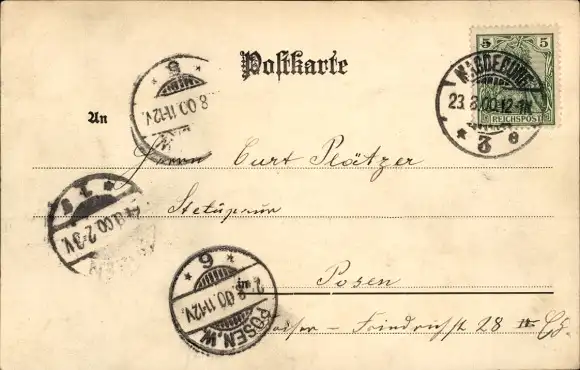 Postkarte
5 5
REICHSPOST
MAGDEBURG
23.8.00.12-1N.
* 3 e
An
* 6 *
8.00.11-12V.
W.
Herrn Curt Plätzer
* 1 *
8.00.2-3V.
6
in Posen
8.00.11-12V.
POSEN.W.
Friedrichstr 28 III